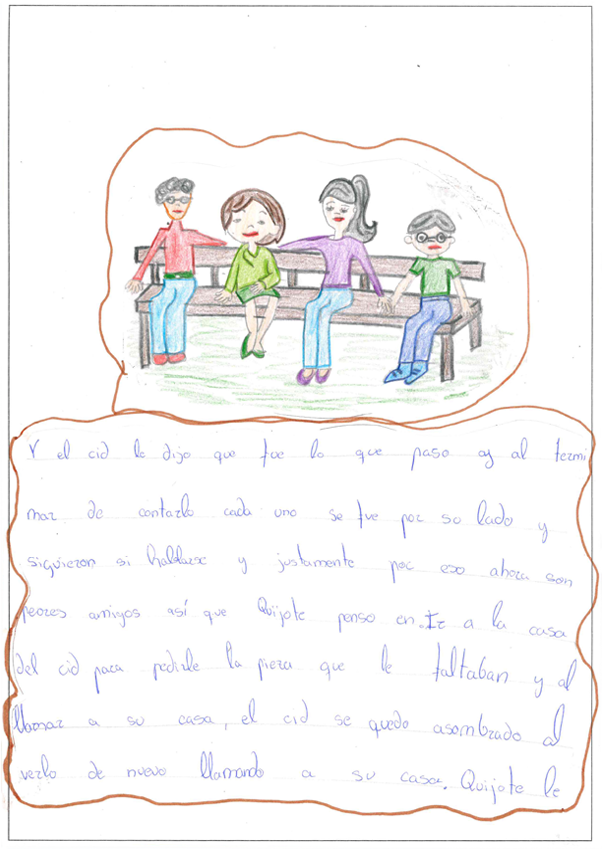 Y el cid le dijo que fue lo que paso y al termi
nar de contarlo cada uno se fue por so lado y
siguieron si hablarse y justamente por eso ahora son
peores amigos así que Quijote penso en Ir a la casa
del cid para pedirle la pieza que le faltaban y al
llamar a su casa, el cid se quedo asombrado al
verlo de nuevo llamando a su casa. Quijote le